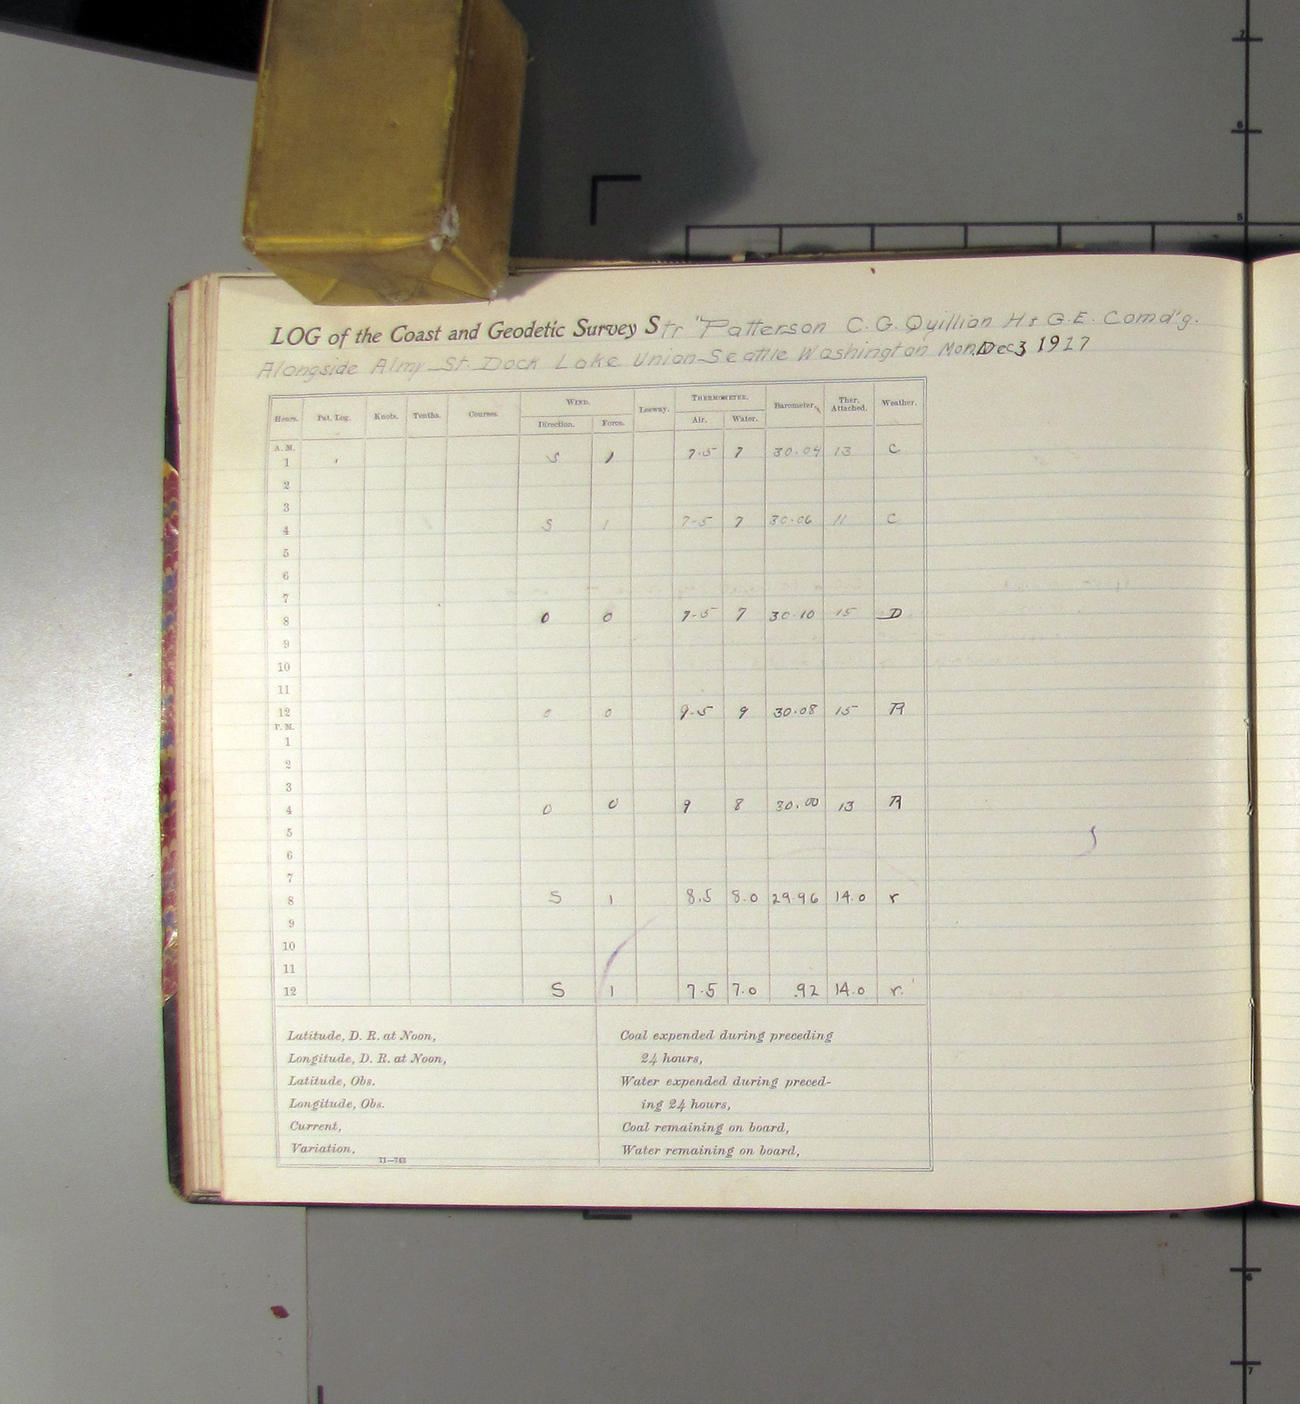 LOG of the Coast and Geodetic Survey Str "Patterson C. G. Quillian H & G.E. Comd'g.
Alongside Almy St. Dock Lake Union-Seattle Washington Mon. Dec 3 1917
Hours. Pat. Log. Knots. Tenths. Courses. WIND. Leeway. THERMOMETER. Barometer. Ther. Attached. Weather.
Direction. Force. Air. Water.
A. M.
1 S 1 7.5 7 30.04 13 C
2
3
4 S 1 7-5 7 30.06 11 C
5
6
7
8 0 0 7-5 7 30.10 15 D
9
10
11
12 0 0 9-5 9 30.08 15 R
P. M.
1
2
3
4 0 0 9 8 30.00 13 R
5
6
7
8 S 1 8.5 8.0 29.96 14.0 r
9
10
11
12 S 1 7.5 7.0 .92 14.0 r.
Latitude, D. R. at Noon,
Longitude, D. R. at Noon,
Latitude, Obs.
Longitude, Obs.
Current,
Variation,
11—743
Coal expended during preceding
24 hours,
Water expended during preced-
ing 24 hours,
Coal remaining on board,
Water remaining on board,
7
6
5
6
7